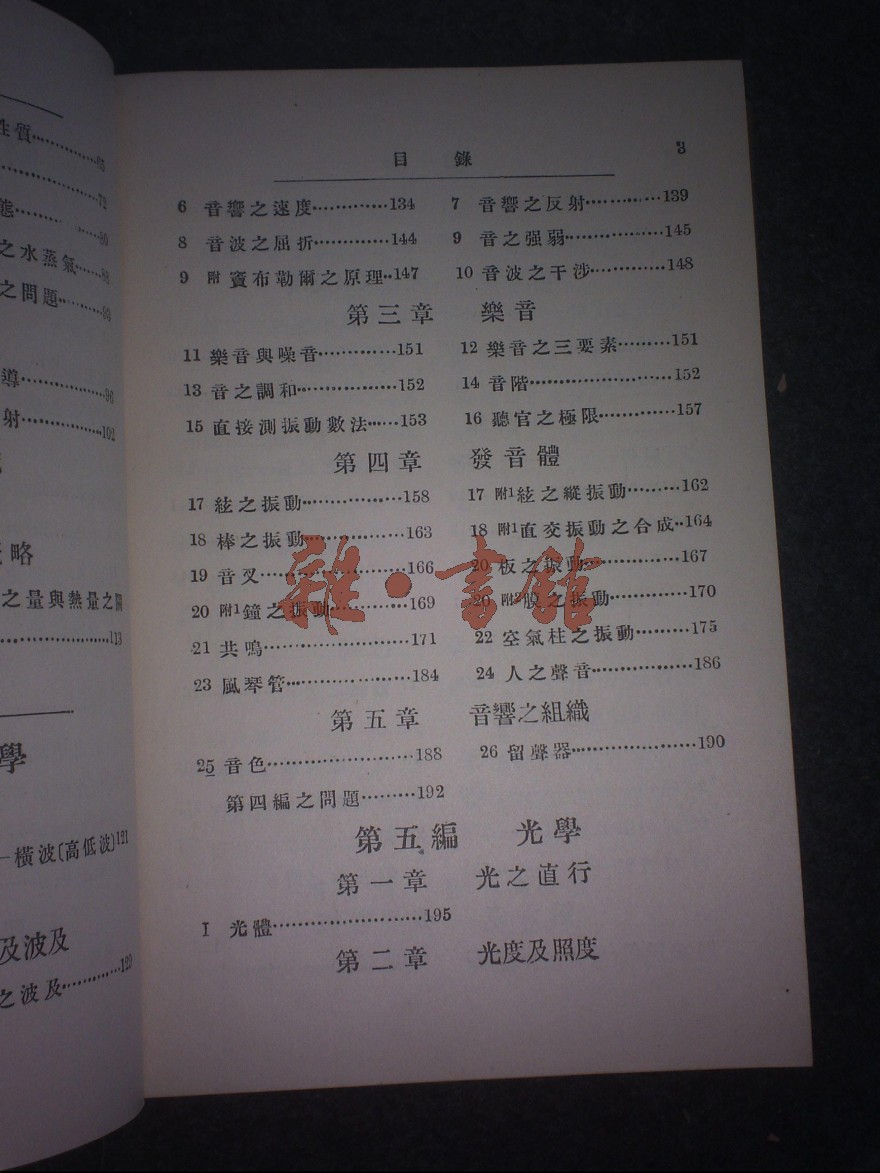 性質……65
……72
態……80
之水蒸氣……86
之問題……89
導……96
射……102
略
之量與熱量之關
……113
學
橫波〔高低波〕121
及波及
之波及……129
目錄 3
6 音響之速度……134 7 音響之反射……139
8 音波之屈折……144 9 音之强弱……145
9 附 竇布勒爾之原理..147 10 音波之干涉……148
第三章 樂音
11 樂音與噪音……151 12 樂音之三要素……151
13 音之調和……152 14 音階……152
15 直接測振動數法……153 16 聽官之極限……157
第四章 發音體
17 絃之振動……158 17 附1絃之縱振動……162
18 棒之振動……163 18 附1直交振動之合成..164
19 音叉……166 20 板之振動……167
20 附1鐘之振動……169 20 附2膜之振動……170
21 共鳴……171 22 空氣柱之振動……175
23 風琴管……184 24 人之聲音……186
第五章 音響之組織
25 音色……188 26 留聲器……190
第四編之問題……192
第五編 光學
第一章 光之直行
I 光體……195
第二章 光度及照度
雜·書館